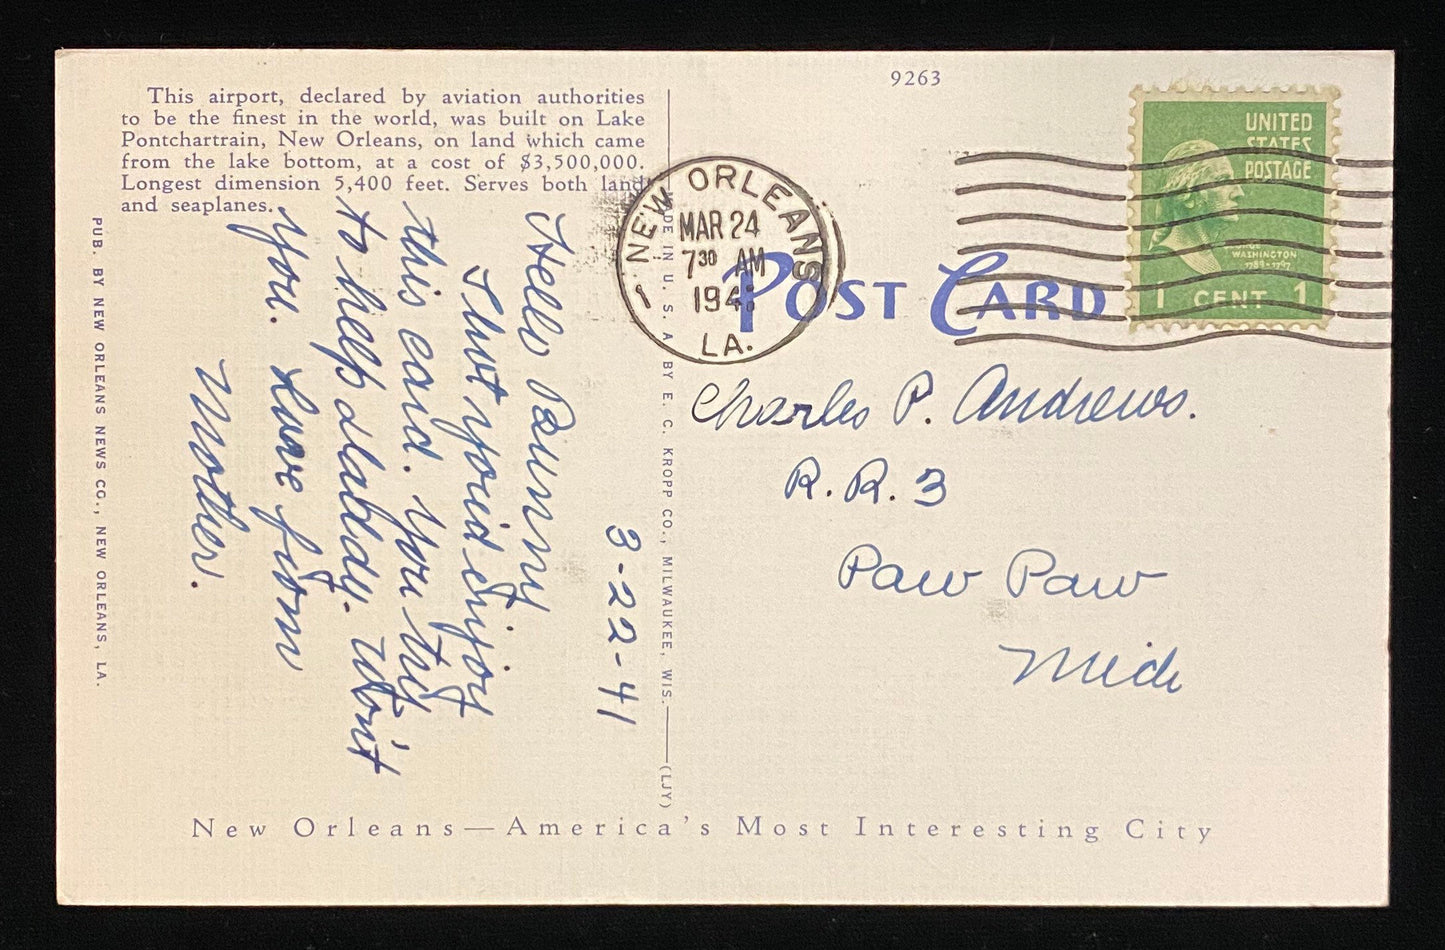 9263
This airport, declared by aviation authorities
to be the finest in the world, was built on Lake
Pontchartrain, New Orleans, on land which came
from the lake bottom, at a cost of $3,500,000.
Longest dimension 5,400 feet. Serves both land
and seaplanes.
PUB. BY NEW ORLEANS NEWS CO., NEW ORLEANS, LA.
3-22-41
Hello Bunny
this card. you
to help daddy. Won't
you. Love from
Mother.
MADE IN U. S. A. BY E. C. KROPP CO., MILWAUKEE, WIS.
(LJY)
NEW ORLEANS
MAR 24
7 30 AM
194
LA.
1
UNITED
STATES
POSTAGE
WASHINGTON
1789-1797
1 CENT 1
POST CARD
Charles P. Andrews.
R. R. 3
Paw Paw
Mich
New Orleans—America's Most Interesting City